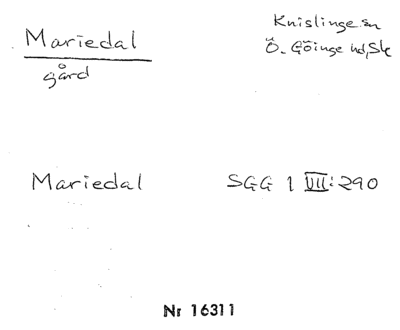 Mariedal
gård
Knislinge sn
Ö. Göinge hd, Sk
Mariedal
SGG 1 VII: 290
Nr 16311